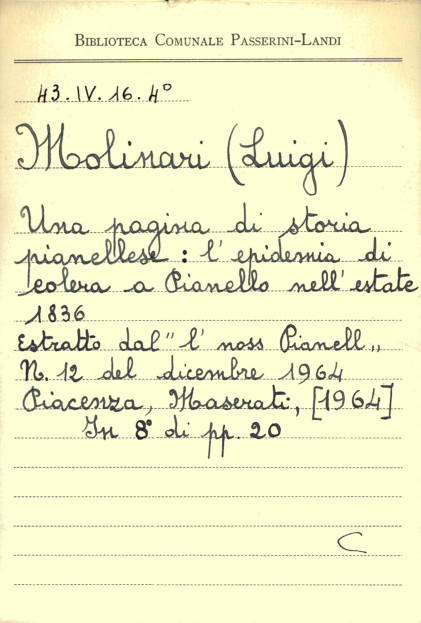 BIBLIOTECA COMUNALE PASSERINI-LANDI
43.IV.16.4°
Molinari (Luigi)
Una pagina di storia
pianellese : l' epidemia di
colera a Pianello nell' estate
1836
Estratto dal " l' noss Pianell „
N. 12 del dicembre 1964
Piacenza, Maserati, [1964]
In 8° di pp. 20
C